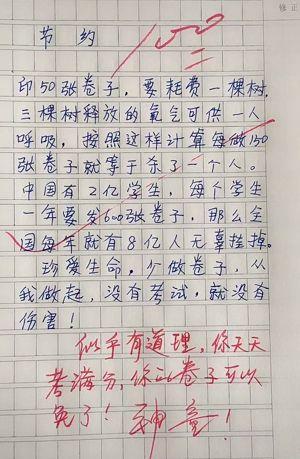 修 正
节约
100
印50张卷子，要耗费一棵树，
三棵树释放的氧气可供一人
呼吸，按照这样计算每做150
张卷子就等于杀了一个人。
中国有2亿学生，每个学生
一年要发600张卷子，那么全
国每年就有8亿人无辜挂掉。
珍爱生命，少做卷子，从
我做起，没有考试，就没有
伤害！
似乎有道理，你天天
考满分，你的卷子可以
免了！神童！